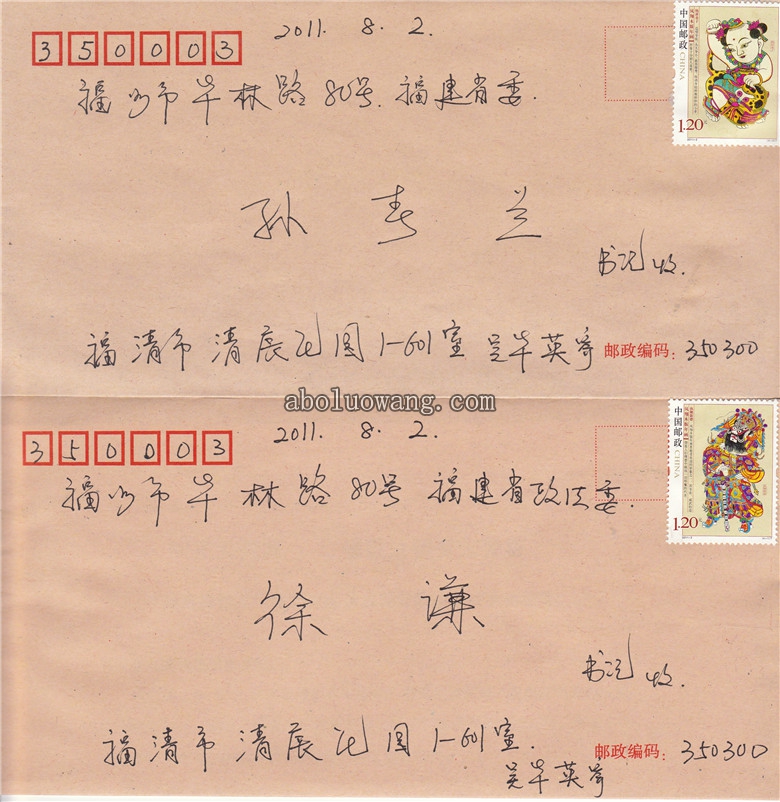 350003
2011. 8. 2.
中国邮政
CHINA
1.20
福州市华林路80号.福建省委.
孙春兰
书记收.
福清市清辰花园1-601室 吴华英寄 邮政编码：350300
aboluowang.com
350003
2011. 8. 2.
中国邮政
CHINA
1.20
福州市华林路80号 福建省政法委.
徐谦
书记收.
福清市清辰花园1-601室.
邮政编码：350300
吴华英寄